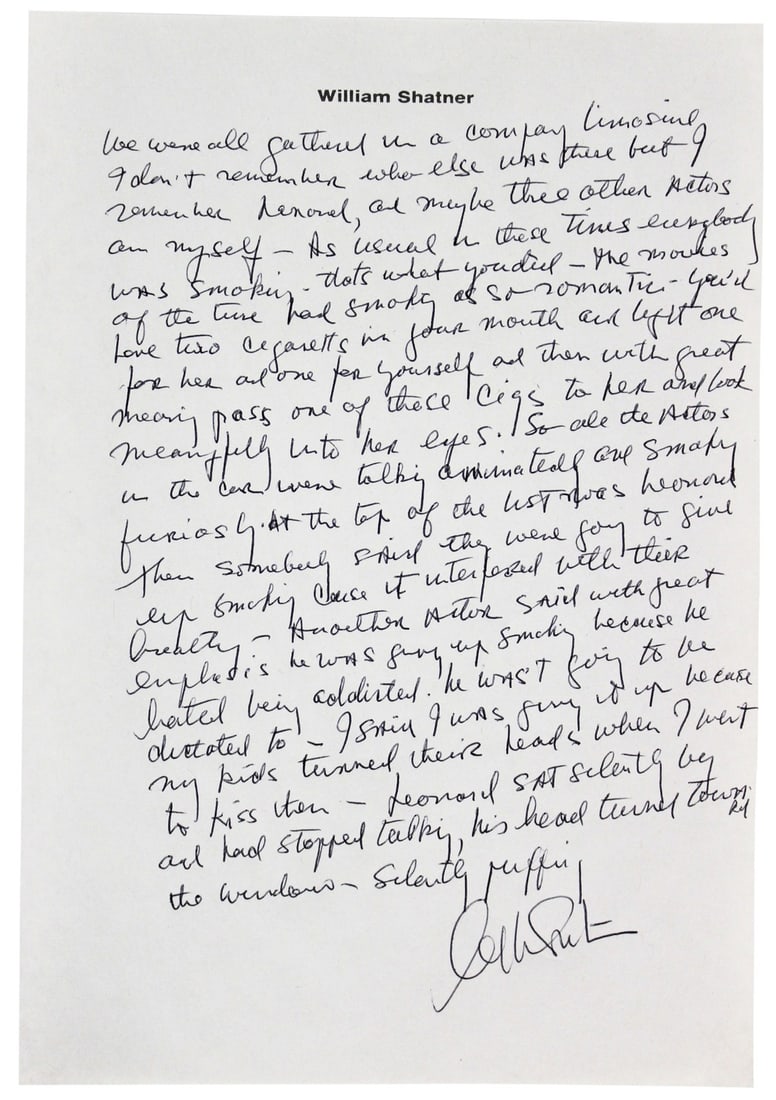 William Shatner
We were all gathered in a company limosine
I don't remember who else was there but I
remember Leonard, and maybe three other Actors
and myself – As usual in these times everybody
was smoking – thats what you did – the movies
of the time had smoking as so romantic – you'd
have two cigaretts in your mouth and light one
for her and one for yourself and then with great
meaning pass one of these cigs to her and look
meaningfully into her eyes. So all the Actors
in the car were talking animatedly and smoking
furiously. At the top of the list was Leonard
Then somebody said they were going to give
up smoking cause it interfered with their
health – Another Actor said with great
emphasis he was giving up smoking because he
hated being addicted. he wasn't going to be
dictated to – I said I was giving it up because
my kids turned their heads when I went
to kiss them – Leonard sat silently by
and had stopped talking, his head turned toward
the window – silently puffing